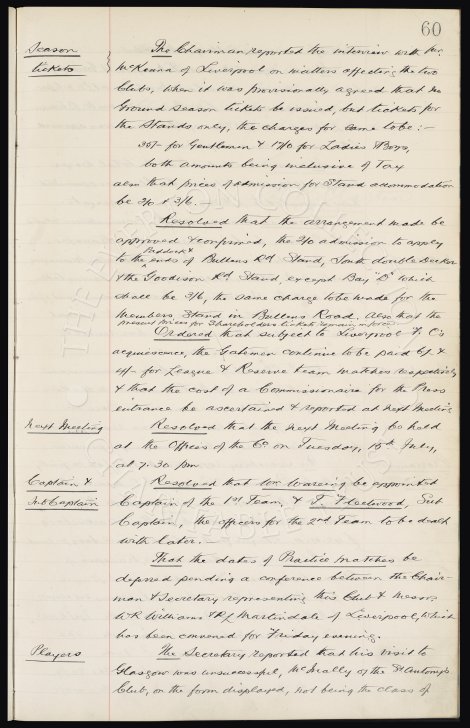 60
Season
tickets
The Chairman reported the interview with Mr.
McKenna of Liverpool on matters affecting the two
Clubs, when it was provisionally agreed that no
Ground Season tickets be issued, but tickets for
the Stands only, the charges for same to be:—
30/- for Gentlemen & 17/6 for Ladies & Boys,
both amounts being inclusive of Tax
also that prices of admission for Stand accommodation
be 3/0 & 3/6.
Resolved that the arrangement made be
approved & confirmed, the 3/0 admission to apply
Paddock &
to the ends of Bullens Rd Stand, South double Decker
& the Goodison Rd Stand, except Bay "D" which
shall be 3/6, the same charge to be made for the
Members Stand in Bullens Road. Also that the
present prices for Shareholders tickets remain in force
Ordered that subject to Liverpool F.C's
acquiescence, the Gatemen continue to be paid 6/- &
4/- for League & Reserve team matches respectively
& that the cost of a Commissionaire for the Press
entrance be ascertained & reported at next Meeting
Next Meeting
Resolved that the next Meeting be held
at the Offices of the Co on Tuesday, 15th July,
at 7.30 pm
Captain &
Sub Captain
Resolved that W. Wareing be appointed
Captain of the 1st Team, & T. Fleetwood, Sub
Captain, the officers for the 2nd Team to be dealt
with later.
That the dates of Practice matches be
deferred pending a conference between the Chair-
man & Secretary representing this Club & Messrs
W.R. Williams & Martindale of Liverpool, which
has been convened for Friday evening.
Players
The Secretary reported that his visit to
Glasgow was unsuccessful, McNally of the St Anthonys
Club, on the form displayed, not being the class of